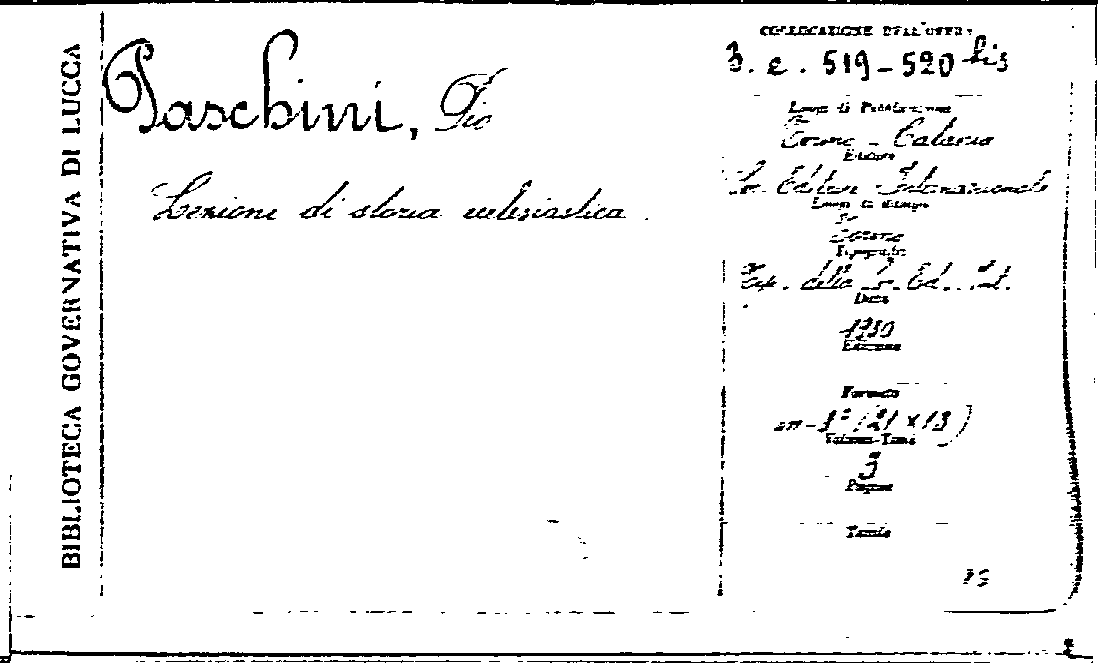 BIBLIOTECA GOVERNATIVA DI LUCCA
Paschini, Pio
Lezione di storia ecclesiastica.
COLLOCAZIONE DELL'OPERA
3. e. 519-520 bis
Luogo di Pubblicazione
Torino - Catania
Editore
Soc. Editrice Internazionale
Luogo di stampa
Torino
Tipografia
Tip. della So. Ed. Int.
Data
1930
Edizione
Formato
in-8° (21 x 13)
Volume-Tomo
3
Pagine
Tavole